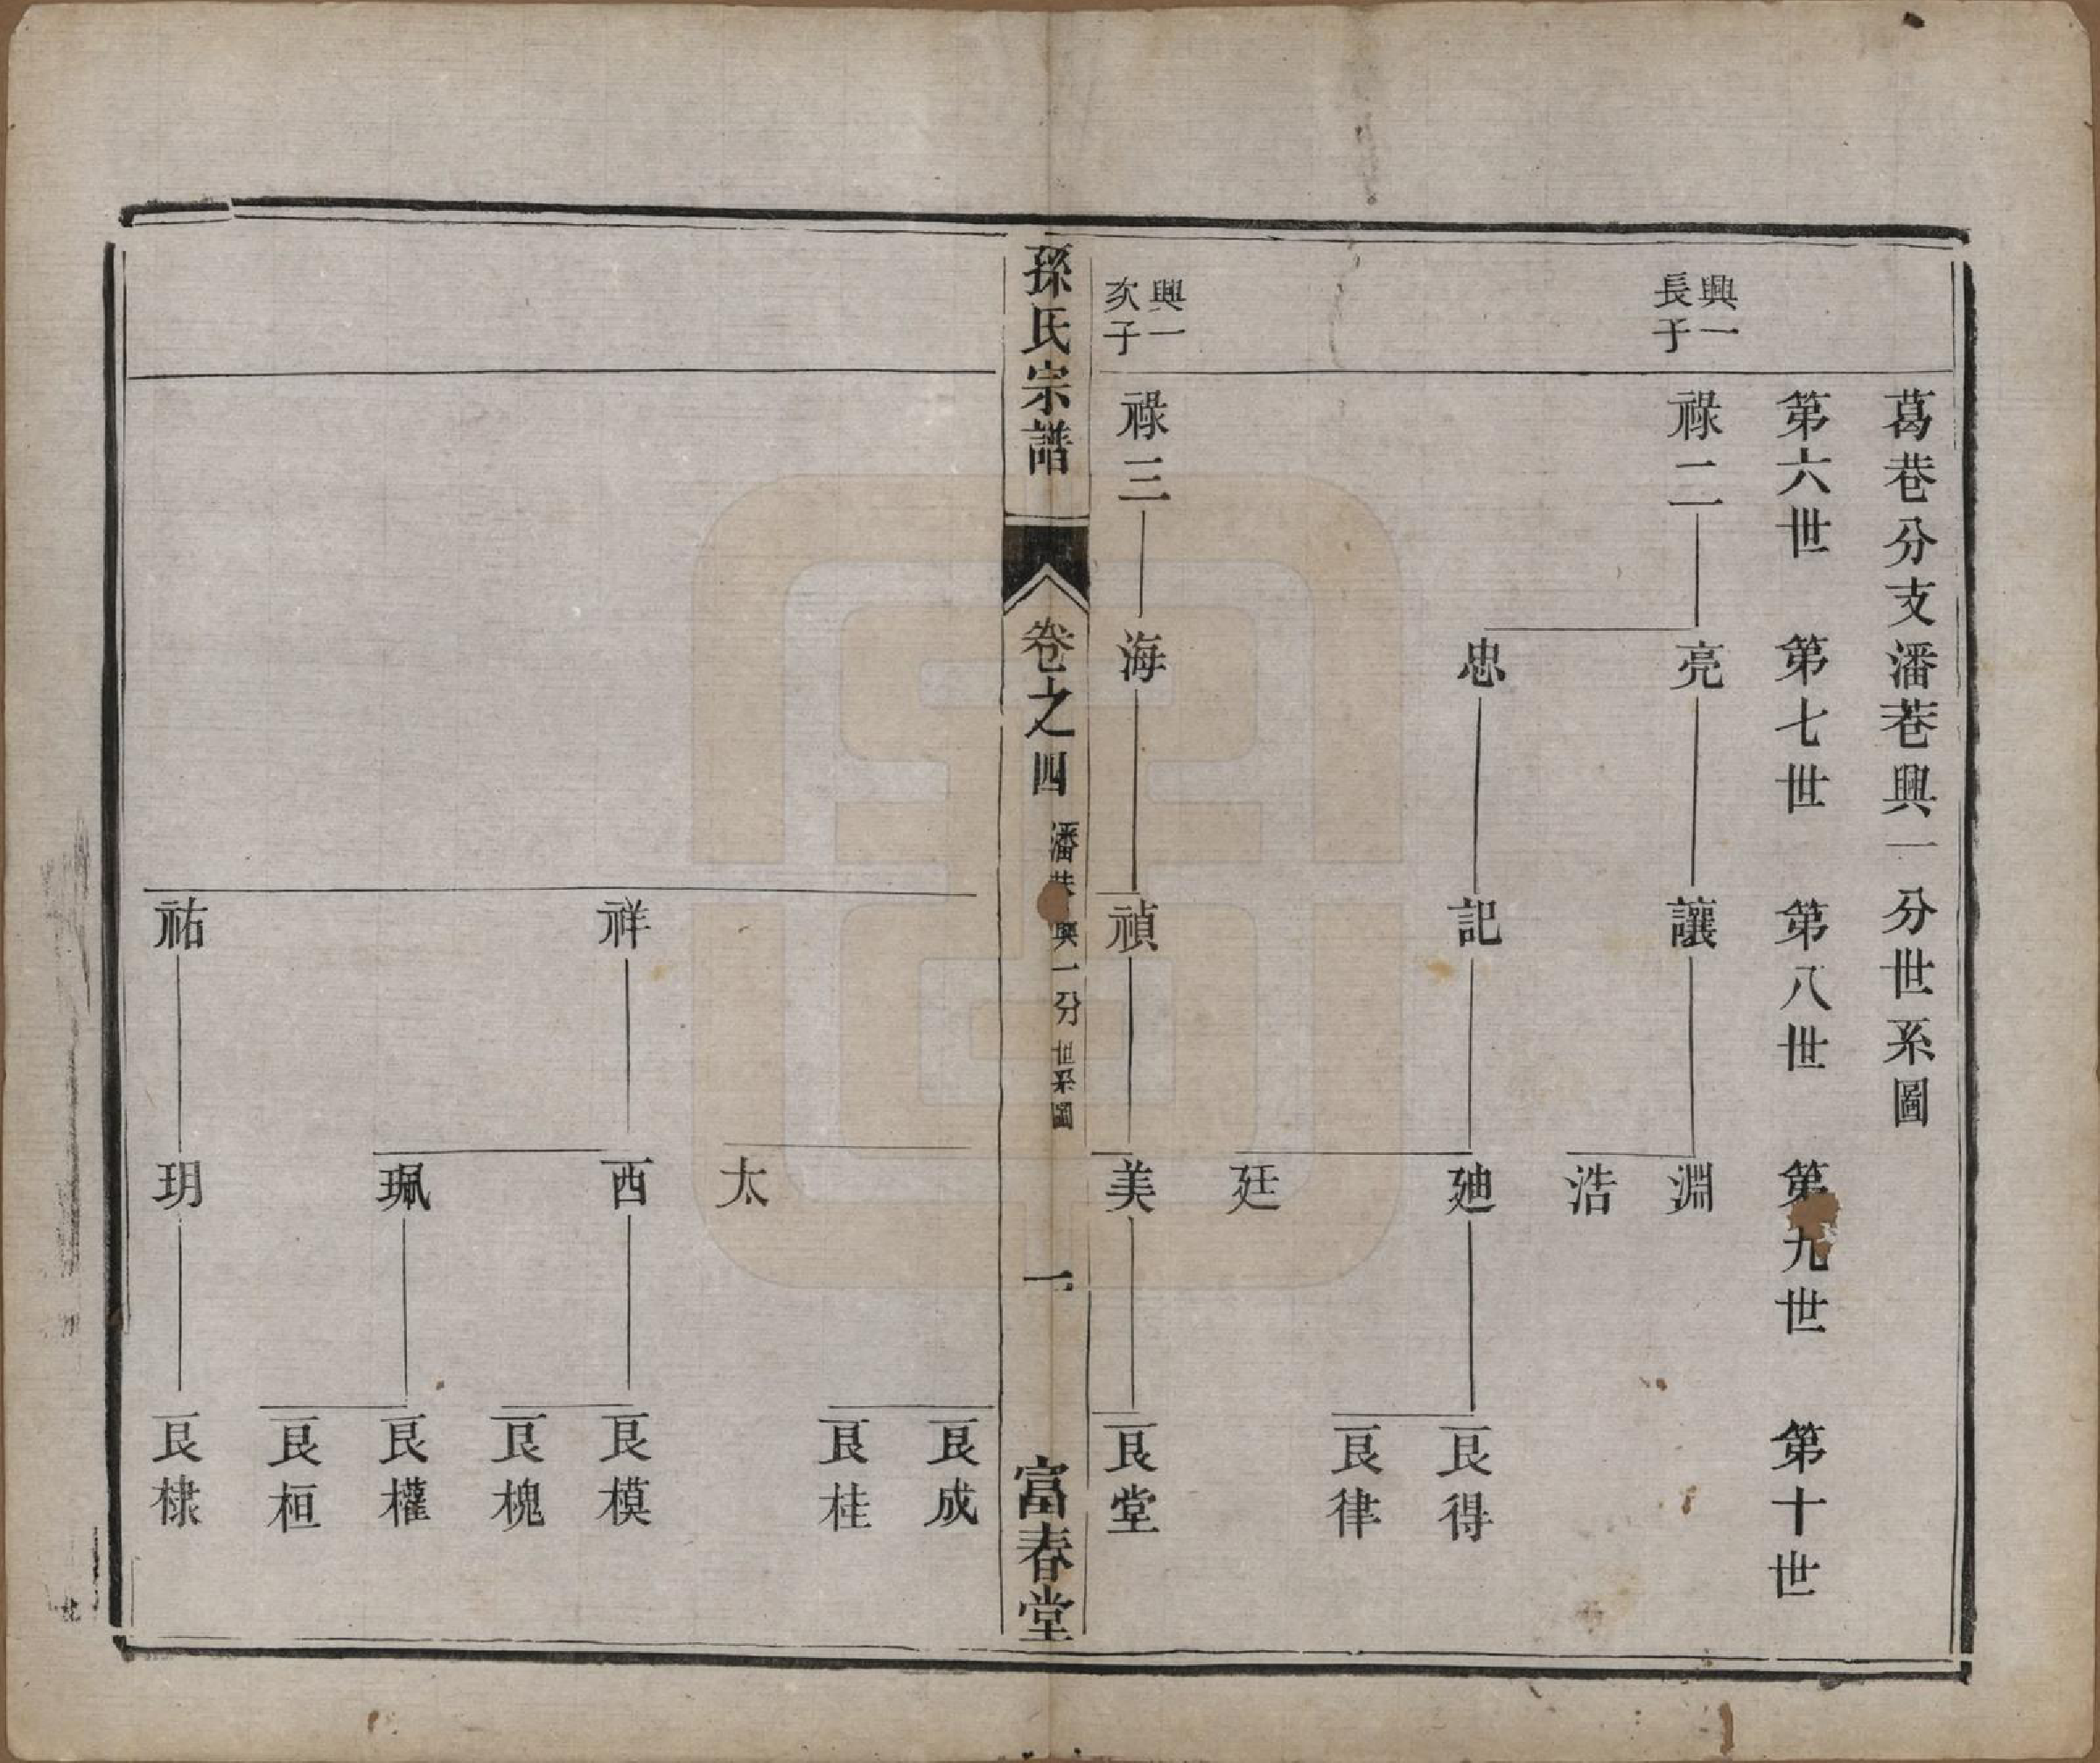 葛巷分支潘巷興一分世系圖
第六世 第七世 第八世 第九世 第十世
興一長子
祿二 亮 讓 淵
浩
忠 記 廸 良得
良律
廷
興一次子
祿三 海 禎 美 良堂
孫氏宗譜 卷之四 潘巷興一分世系圖 一 富春堂
良成
良桂
太
祥 西 良模
良槐
珮 良權
良桓
祐 玥 良棣